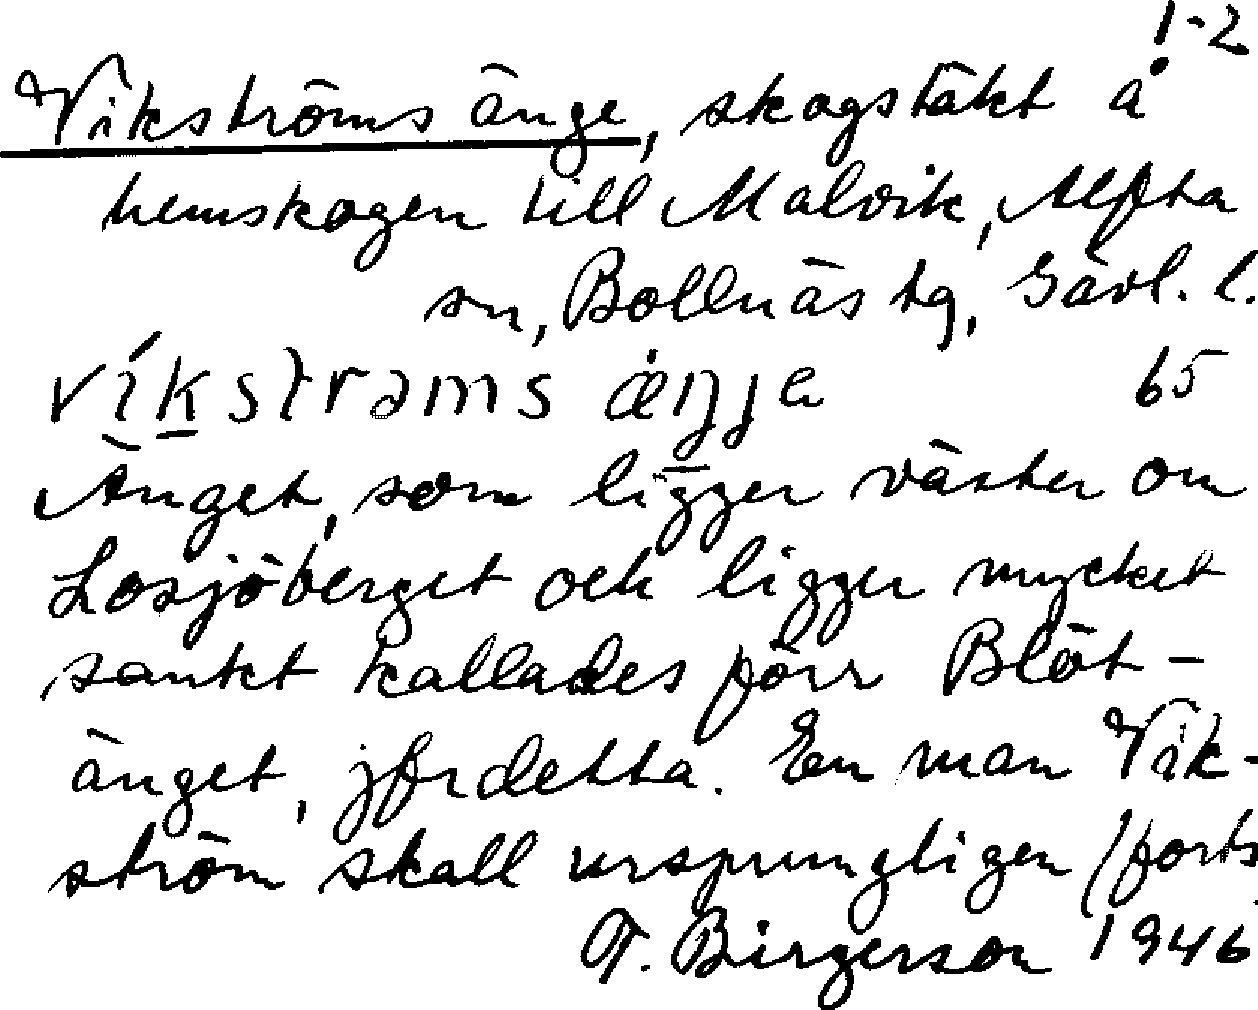 1-2
Vikströms änge, skogstäkt å
hemskogen till Malvik, Alfta
sn, Bollnäs tg, Gävl. l.
víkstrəms æŋɟa 65
Änget, som ligger väster om
Losjöberget och ligger mycket
sankt kallades förr Blöt-
änget, jfr detta. En man Vik-
ström skall ursprungligen (forts.
T. Birgerson 1946